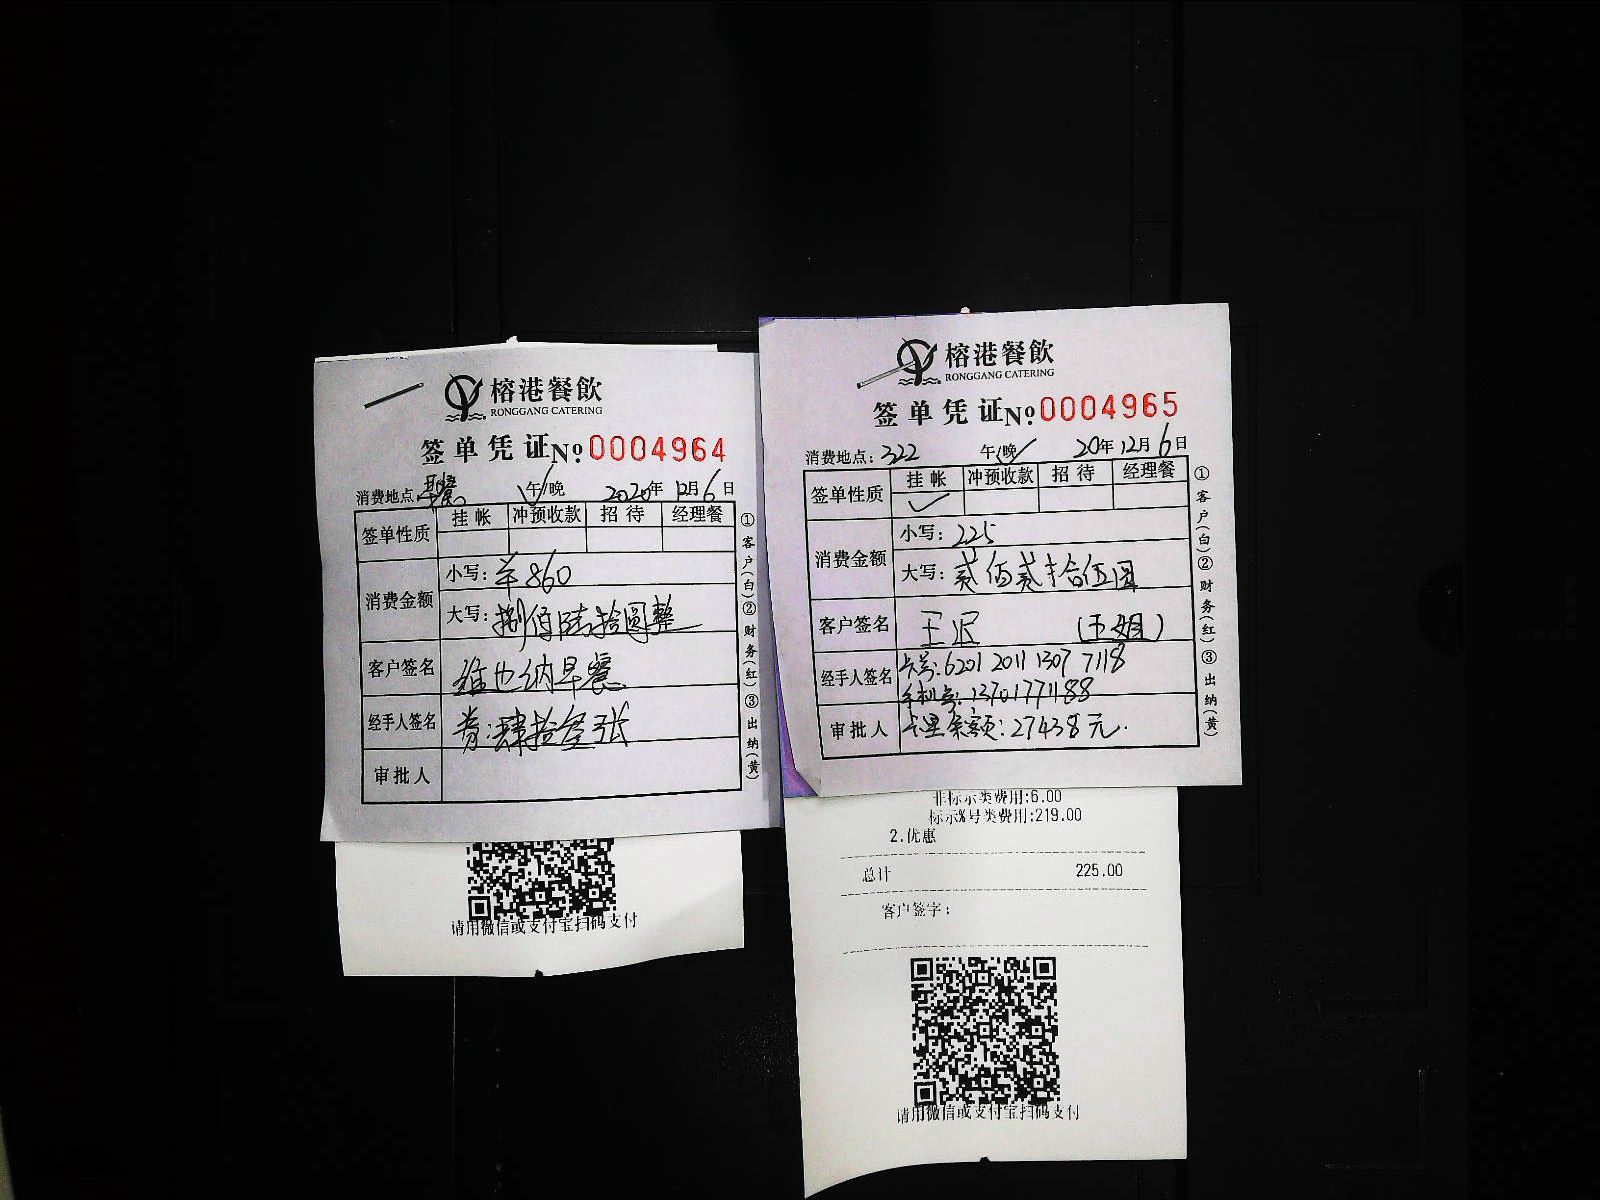 榕港餐飲
RONGGANG CATERING
签单凭证 №0004964
消费地点 早餐 午/晚 2020年12月6日
签单性质 挂帐 冲预收款 招待 经理餐
消费金额 小写: ¥860
大写: 捌佰陆拾圆整
客户签名 维也纳早餐
经手人签名 券:肆拾叁张
审批人
①客户(白)②财务(红)③出纳(黄)
请用微信或支付宝扫码支付
榕港餐飲
RONGGANG CATERING
签单凭证 №0004965
消费地点: 322 午/晚 20年12月6日
签单性质 挂帐 冲预收款 招待 经理餐
消费金额 小写: 225
大写: 贰佰贰拾伍圆
客户签名 王 (王姐)
经手人签名 卡号:6201 2011 1307 7118
手机号:13701771188
审批人 卡里余额:27438元.
①客户(白)②财务(红)③出纳(黄)
非标示类费用:6.00
标示%号类费用:219.00
2.优惠
总计 225.00
客户签字:
请用微信或支付宝扫码支付